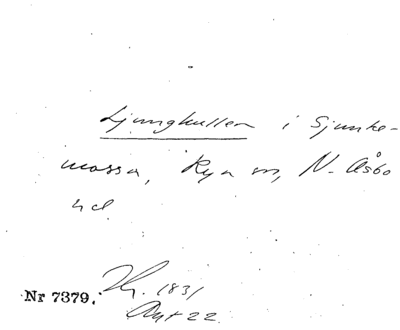 Ljungkullen i Sjunke-
mossa, Rya sn, N. Åsbo
hd.
Nr 7379. 1831
Avt 22.